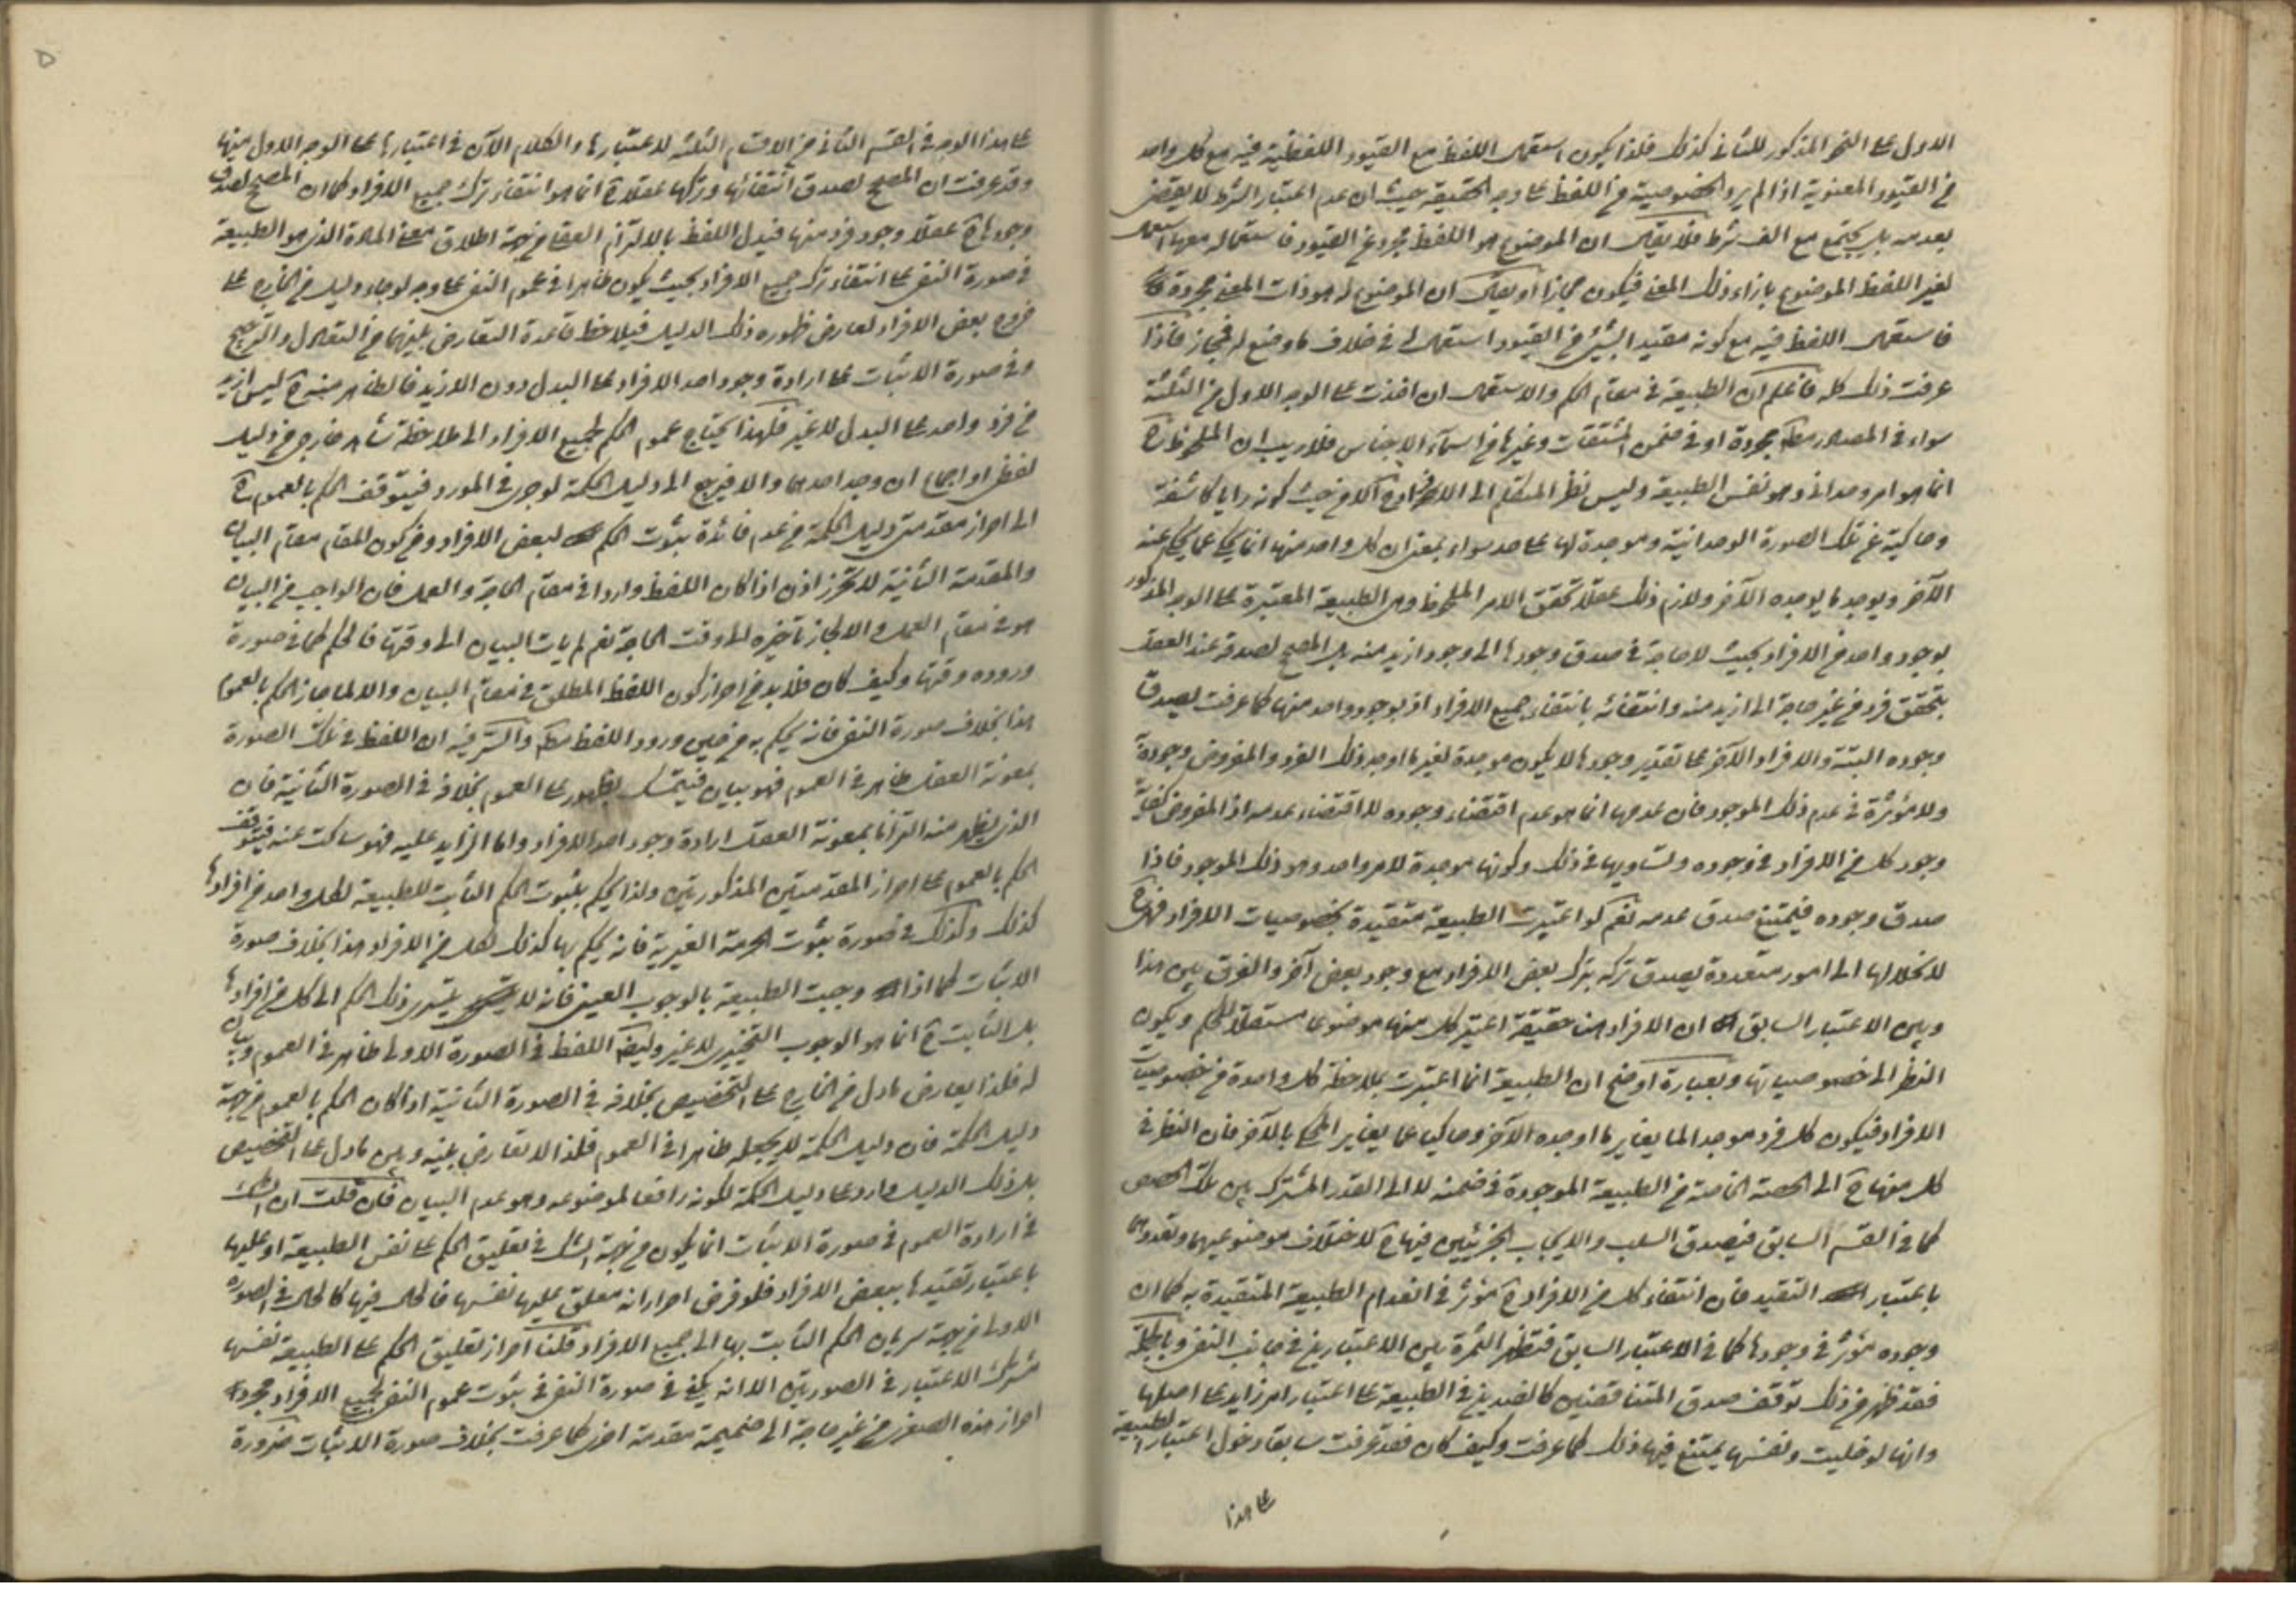 الاول على النحو المذكور للثاني كذلك فلذا يكون استعمال اللفظ مع القيود اللفظية فيه مع كل واحد
من القيود المعنوية اذا لم يرد الخصوصية من اللفظ على وجه الحقيقة حيث ان عدم اعتبار الشرط لا يقتضى
بعدمه بل يجتمع مع الف شرط فلا يقال ان الموضوع هو اللفظ مجرد عن القيود فاستعماله معها استعمال
لغير اللفظ الموضوع بازاء ذلك المعنى فيكون مجازا او يقال ان الموضوع له هو ذات المعنى مجردة
فاستعمال اللفظ فيه مع كونه مقيدا بشيئ من القيود استعمال له في خلاف ما وضع له فمجاز فاذا
عرفت ذلك كله فاعلم ان الطبيعة في مقام الحكم والاستعمال ان اخذت على الوجه الاول من الثلثة
سواء في المصادر مط مجردة او في ضمن المشتقات وغيرها من اسماء الاجناس فلا ريب ان الملحوظ ح
انما هو امر وحداني وهو نفس الطبيعة وليس نظر المتكلم الى الافراد ح الا من حيث كونه مرايا كاشفة
وحاكية عن تلك الصورة الوحدانية وموجدة لها على حد سواء بمعنى ان كل واحد منها انما يحكى عما يحكى عنه
الآخر ويوجد ما يوجده الآخر ولازم ذلك عقلا تحقق الامر الملحوظ وهى الطبيعة المعتبرة على الوجه المذكور
بوجود واحد من الافراد بحيث لا حاجة في صدق وجودها الى وجود ازيد منه بل المصحح لصدقه عند العقل
بتحقق فرد من غير حاجة الى ازيد منه وانتفائه بانتفاء جميع الافراد اذ بوجود واحد منها كما عرفت يصدق
وجوده البتة والافراد الآخر على تقدير وجودها لا يكون موجدة لغير ما اوجد ذلك الفرد والمفروض وجوده
ولا مؤثرة في عدم ذلك الموجود فان عدمها انما هو عدم اقتضاء وجوده لا اقتضاء عدمه اذ المفروض كفاية
وجود كل من الافراد في وجوده وتساويها في ذلك وكونها موجدة لامر واحد وهو ذلك الموجود فاذا
صدق وجوده فيمتنع صدق عدمه نعم لو اعتبرت الطبيعة متقيدة بخصوصيات الافراد فهى ح
لانحلالها الى امور متعددة يصدق تركه بترك بعض الافراد مع وجود بعض آخر والفرق بين هذا
وبين الاعتبار السابق ان الافراد هنا حقيقة اعتبر كل منها موضوعا مستقلا للحكم ويكون
النظر الى خصوصياتها وبعبارة اوضح ان الطبيعة انما اعتبرت بملاحظة كل واحدة من خصوصيات
الافراد فيكون كل فرد موجدا لما يغاير ما اوجده الآخر وحاكيا عما يغاير المحكى بالآخر فان النظر في
كل منها ح الى الحصة الخاصة من الطبيعة الموجودة في ضمنه لا الى القدر المشترك بين تلك الحصص
كما في القسم السابق فيصدق السلب والايجاب الجزئيين فيها ح لاختلاف موضوعيهما وتعددهما
باعتبار التقيد فان انتفاء كل من الافراد ح مؤثر في انعدام الطبيعة المتقيدة به كما ان
وجوده مؤثر في وجودها كما في الاعتبار السابق فتظهر الثمرة بين الاعتبارين في جانب النفى وبالجملة
فقد ظهر من ذلك توقف صدق المتناقضين كالضدين في الطبيعة على اعتبار امر زايد على اصلها
وانها لو خليت ونفسها يمتنع فيها ذلك كما عرفت وكيف كان فقد عرفت سابقا دخول اعتبار الطبيعة
على هذا
على هذا الوجه في القسم الثاني من الاقسام الثلثة لاعتبارها والكلام الآن في اعتبارها على الوجه الاول منها
وقد عرفت ان المصحح لصدق انتفائها وتركها عقلا ح انما هو انتفاء وترك جميع الافراد كما ان المصحح لصدق
وجودها ح عقلا وجود فرد منها فيدل اللفظ بالالتزام العقلى من جهة اطلاق معنى المادة الذى هو الطبيعة
في صورة النفى على انتفاء وترك جميع الافراد بحيث يكون ظاهرا في عموم النفى على وجه لو جاء دليل من الخارج على
خروج بعض الافراد لعارض ظهوره ذلك الدليل فيلاحظ قاعدة التعارض بينهما من التعادل والترجيح
وفي صورة الاثبات على ارادة وجود احد الافراد على البدل دون الازيد فالظاهر منه ح ليس ازيد
من فرد واحد على البدل لا غير فلهذا يحتاج عموم الحكم لجميع الافراد الى ملاحظة شاهد خارجى من دليل
لفظى او اجماع ان وجد احدهما والا فيرجع الى دليل الحكمة لو جرى في المورد فيتوقف الحكم بالعموم ح
الى احراز مقدمتى دليل الحكمة من عدم فائدة بثبوت الحكم لبعض الافراد ومن كون المقام مقام البيان
والمقدمة الثانية لا تحرز اذن اذا كان اللفظ واردا في مقام الحاجة والعمل فان الواجب من البيان
هو في مقام العمل والا لجاز تأخيره الى وقت الحاجة نعم لم يأت البيان الى وقتها فالحكم كما في صورة
وروده وقتها وكيف كان فلا بد من احراز كون اللفظ المطلق في مقام البيان والا لما جاز الحكم بالعموم
هذا بخلاف صورة النفى فانه يحكم به من حين ورود اللفظ مط والسر فيه ان اللفظ في تلك الصورة
بمعونة العقل ظاهر في العموم فهو بيان فيتمسك بظهوره على العموم بخلافه في الصورة الثانية فان
الذى يظهر منه التزاما بمعونة العقل ارادة وجود احد الافراد واما الزايد عليه فهو ساكت عنه فيتوقف
الحكم بالعموم على احراز المقدمتين المذكورتين ولذا يحكم بثبوت الحكم الثابت للطبيعة لكل واحد من افرادها
كذلك وكذلك في صورة ثبوت الحرمة الغيرية فانه يحكم بها كذلك لكل من الافراد هذا بخلاف صورة
الاثبات كما اذا وجبت الطبيعة بالوجوب العينى فانه لا يتسرى ذلك الحكم الى كل من افرادها
بل الثابت ح انما هو الوجوب التخييرى لا غير وايضا اللفظ في الصورة الاولى ظاهر في العموم وبيان
له فلذا يعارض ما دل من الخارج على التخصيص بخلافه في الصورة الثانية اذا كان الحكم بالعموم من جهة
دليل الحكمة فان دليل الحكمة لا يجعله ظاهرا في العموم فلذا لا تعارض بينه وبين ما دل على التخصيص
بل ذلك الدليل وارد على دليل الحكمة لكونه رافعا لموضوعه وهو عدم البيان فان قلت ان الشك
في ارادة العموم في صورة الاثبات انما يكون من جهة الشك في تعليق الحكم على نفس الطبيعة او عليها
باعتبار تقيدها ببعض الافراد فلو فرض احراز انه معلق عليها نفسها فالحال فيها كالحال في الصورة
الاولى من جهة سريان الحكم الثابت بها الى جميع الافراد قلنا احراز تعليق الحكم على الطبيعة نفسها
مشترك الاعتبار في الصورتين الا انه يكفى في صورة النفى في ثبوت عموم النفى لجميع الافراد مجرد
احراز هذه الصغرى من غير حاجة الى ضميمة مقدمة اخرى كما عرفت بخلاف صورة الاثبات ضرورة